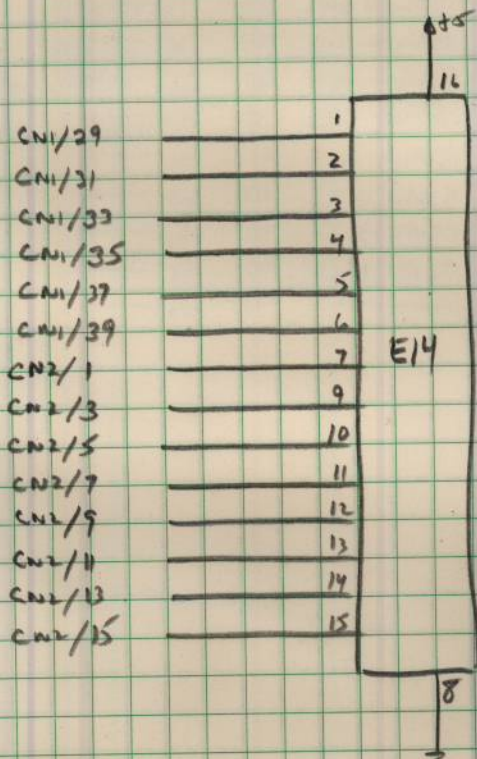 +5
16
CN1/29 1
CN1/31 2
CN1/33 3
CN1/35 4
CN1/37 5
CN1/39 6
CN2/1 7
E14
CN2/3 9
CN2/5 10
CN2/7 11
CN2/9 12
CN2/11 13
CN2/13 14
CN2/15 15
8